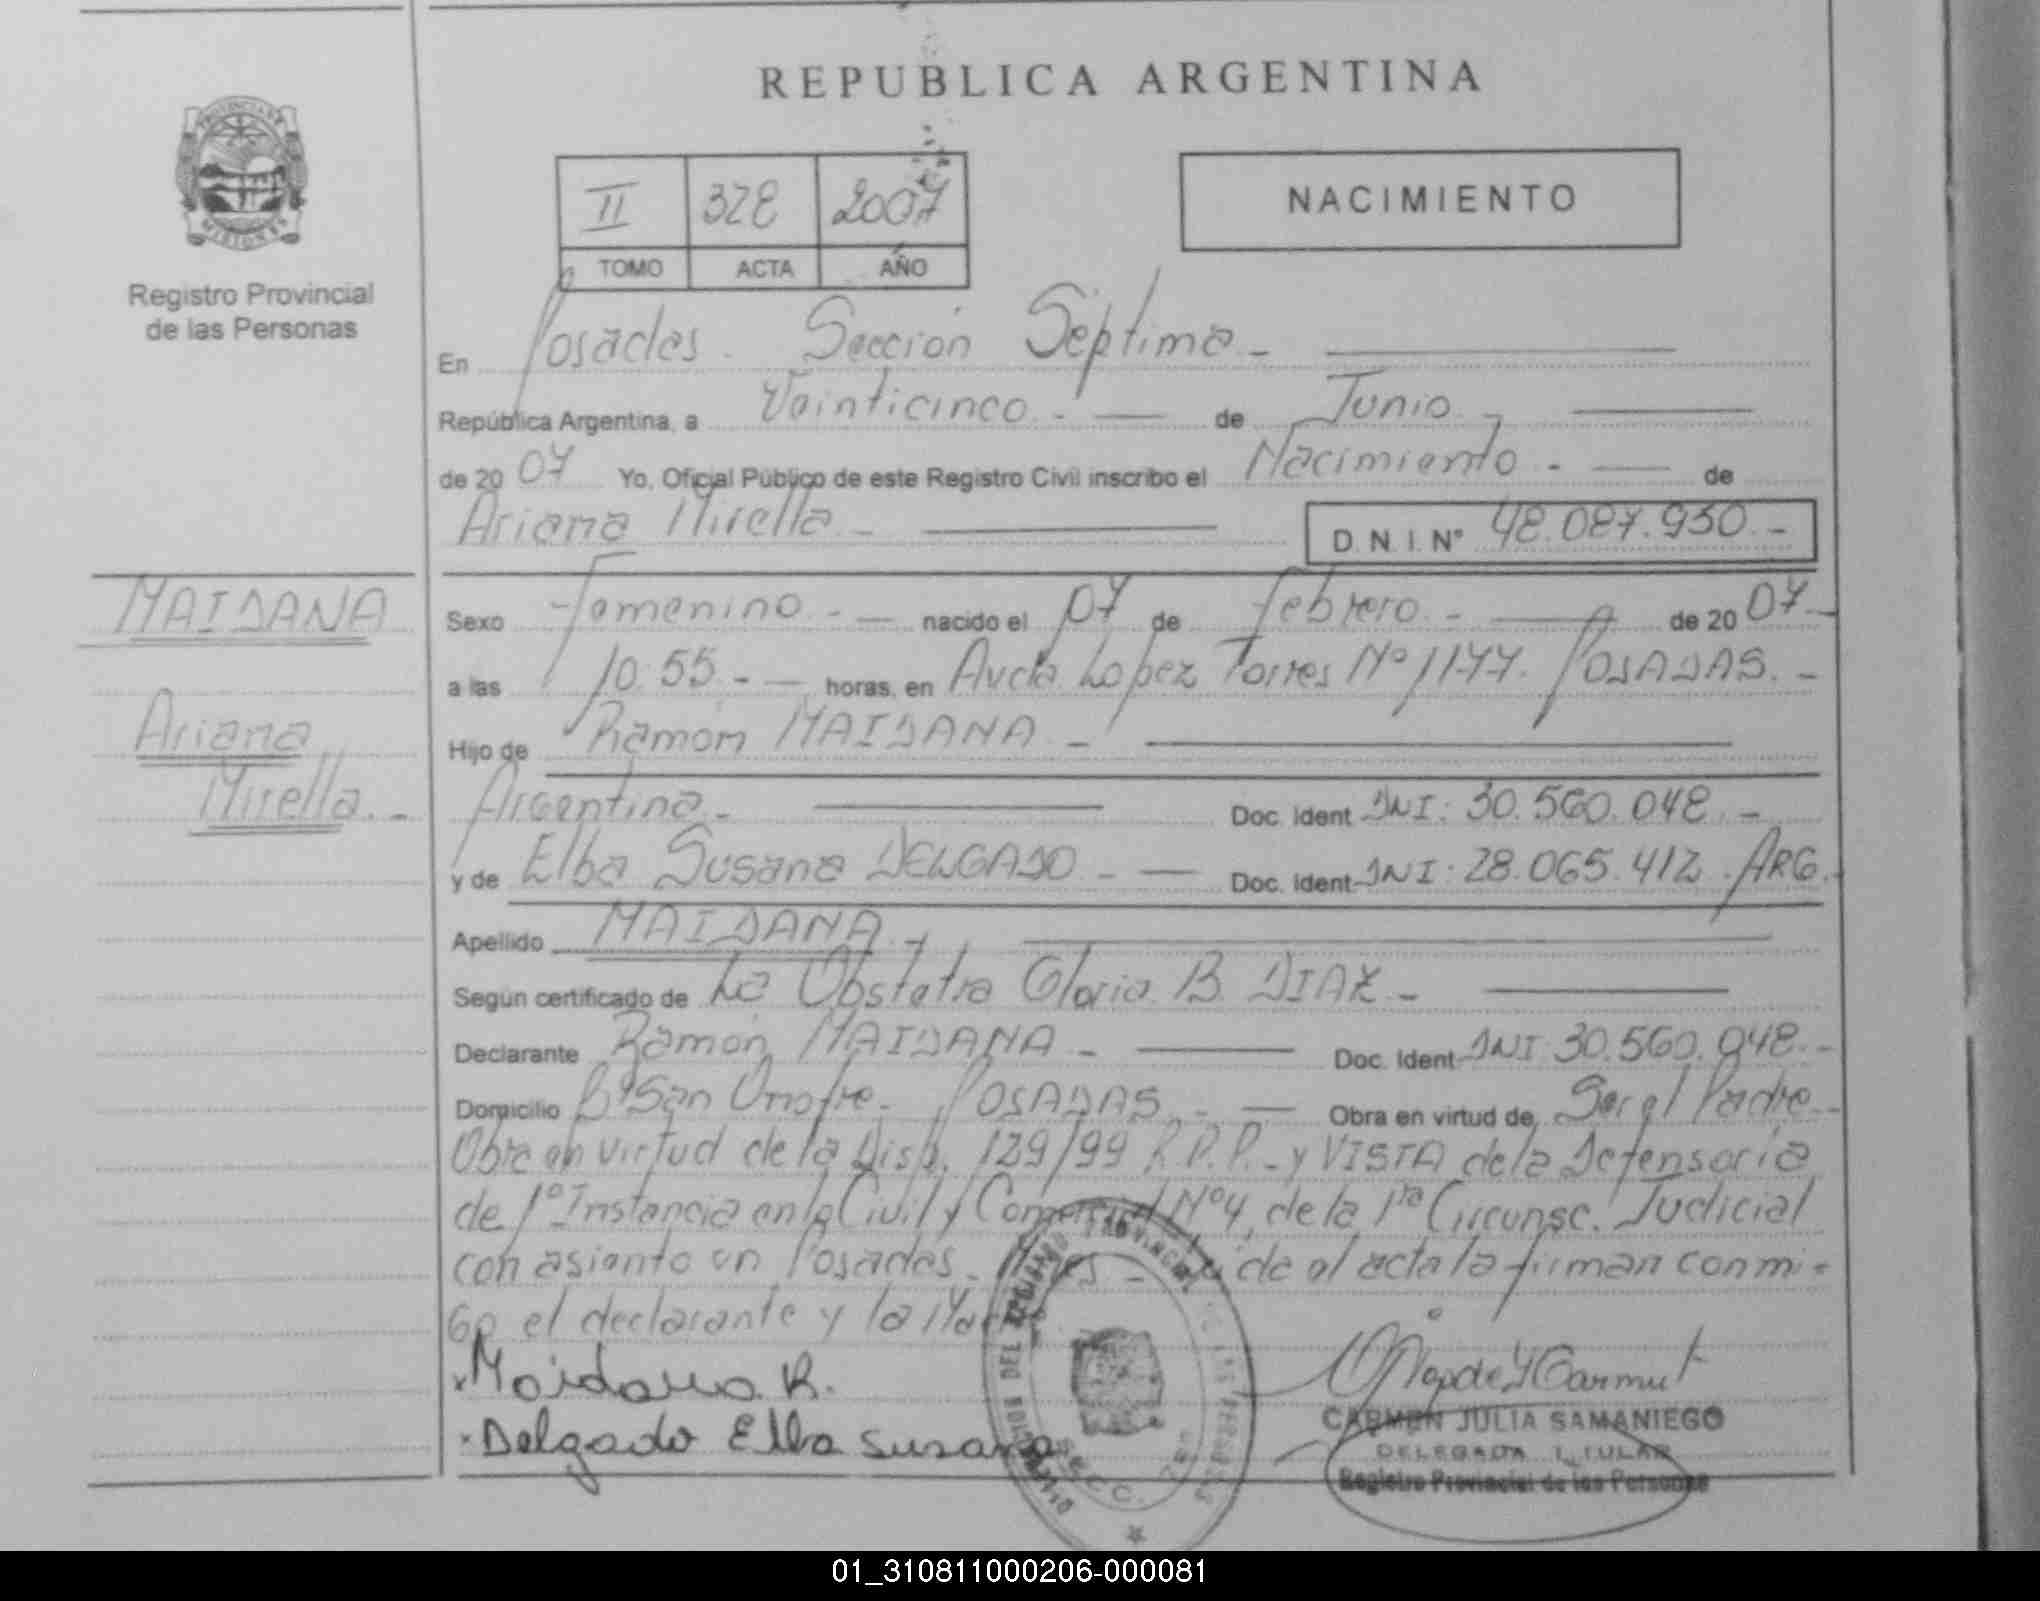 REPUBLICA ARGENTINA
PROVINCIA DE
MISIONES
Registro Provincial
de las Personas
II 328 2007
TOMO ACTA AÑO
NACIMIENTO
En Posadas. Sección Séptima.-
República Argentina, a Veinticinco.- de Junio.-
de 2007 Yo, Oficial Público de este Registro Civil inscribo el Nacimiento.- de
Ariana Mirella.- D.N.I. Nº 48.087.950.-
MAIDANA
Ariana
Mirella.-
Sexo Femenino.- nacido el 07 de febrero.- de 2007.-
a las 10:55.- horas, en Avda. Lopez Torres Nº 1177. POSADAS.-
Hijo de Ramón MAIDANA.-
Argentina.- Doc. Ident. DNI: 30.560.048.-
y de Elba Susana DELGADO.- Doc. Ident. DNI: 28.065.412. ARG.
Apellido MAIDANA.-
Según certificado de La Obstetra Gloria B. DIAZ.-
Declarante Ramón MAIDANA.- Doc. Ident. DNI 30.560.048.-
Domicilio Bº San Onofre. POSADAS.- Obra en virtud de Ser el Padre.-
Obra en virtud de la Disp. 129/99 R.P.P.-y VISTA de la Defensoria
de 1º Instancia en lo Civil y Comercial Nº4, de la 1ra Circunsc. Judicial
con asiento en Posadas. de el acta la firman conmi-
go el declarante y la
x Maidana R.
x Delgado Elba Susana
CARMEN JULIA SAMANIEGO
DELEGADA TITULAR
Registro Provincial de las Personas
01_310811000206-000081